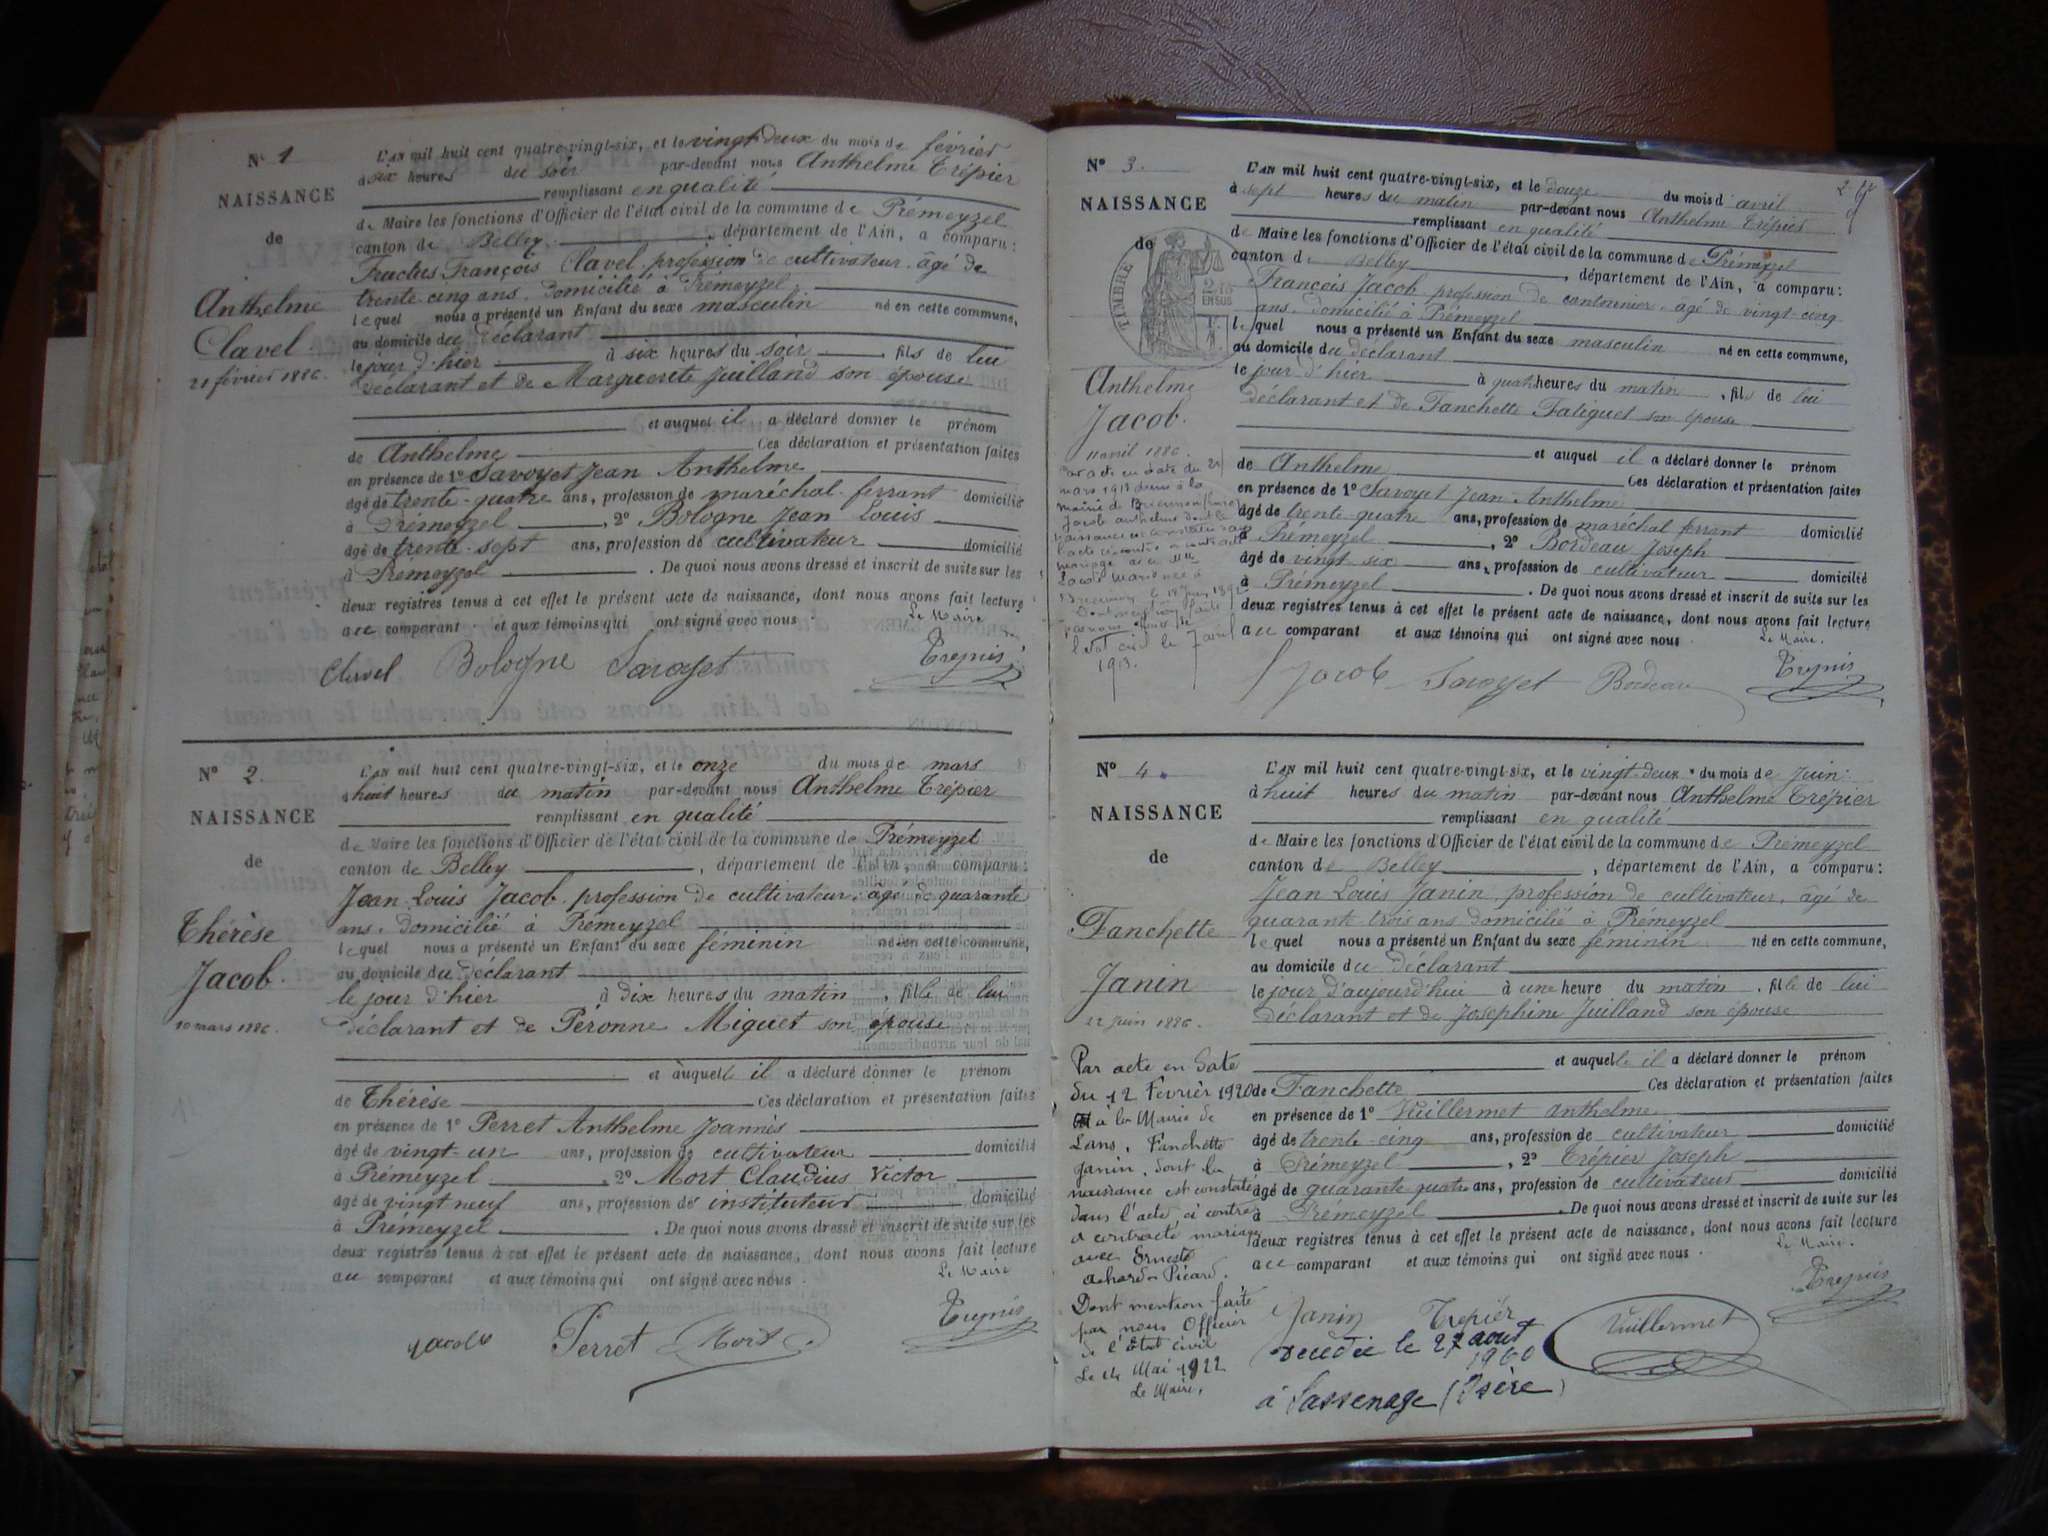 N° 1
NAISSANCE
de
Anthelme
Clavel
21 février 1886.
L'AN mil huit cent quatre-vingt-six, et le vingt-deux du mois de février
à six heures du soir par-devant nous Anthelme Trépier
remplissant en qualité
de Maire les fonctions d'Officier de l'état civil de la commune de Prémeyzel
canton de Belley, département de l'Ain, a comparu:
François Clavel, profession de cultivateur, âgé de
trente cinq ans, domicilié à Prémeyzel
lequel nous a présenté un Enfant du sexe masculin né en cette commune,
au domicile du déclarant
le jour d'hier à six heures du soir fils de lui
déclarant et de Marguerite Juilland son épouse
et auquel il a déclaré donner le prénom
de Anthelme Ces déclaration et présentation faites
en présence de 1° Savoyet Jean Anthelme
âgé de trente-quatre ans, profession de maréchal-ferrant domicilié
à Prémeyzel, 2° Bologne Jean Louis
âgé de trente-sept ans, profession de cultivateur domicilié
à Prémeyzel. De quoi nous avons dressé et inscrit de suite sur les
deux registres tenus à cet effet le présent acte de naissance, dont nous avons fait lecture
au comparant et aux témoins qui ont signé avec nous.
Le Maire
Clavel Bologne Savoyet Trépier
N° 2.
NAISSANCE
de
Thérèse
Jacob.
10 mars 1886.
L'AN mil huit cent quatre-vingt-six, et le onze du mois de mars
à huit heures du matin par-devant nous Anthelme Trépier
remplissant en qualité
de Maire les fonctions d'Officier de l'état civil de la commune de Prémeyzel
canton de Belley, département de l'Ain, a comparu:
Jean Louis Jacob, profession de cultivateur, âgé de quarante
ans, domicilié à Prémeyzel
lequel nous a présenté un Enfant du sexe féminin né en cette commune,
au domicile du déclarant
le jour d'hier à dix heures du matin, fille de lui
déclarant et de Péronne Miguet son épouse
et auquelle il a déclaré donner le prénom
de Thérèse Ces déclaration et présentation faites
en présence de 1° Perret Anthelme Joannès
âgé de vingt-un ans, profession de cultivateur domicilié
à Prémeyzel, 2° Mort Claudius Victor
âgé de vingt neuf ans, profession de instituteur domicilié
à Prémeyzel. De quoi nous avons dressé et inscrit de suite sur les
deux registres tenus à cet effet le présent acte de naissance, dont nous avons fait lecture
au comparant et aux témoins qui ont signé avec nous.
Le Maire
Jacob Perret Mort Trépier
N° 3.
NAISSANCE
de
TIMBRE
Anthelme
Jacob.
11 avril 1886.
Par acte en date du
mars 1913 à la
mairie de
Jacob Anthelme dont la
naissance est constatée dans
l'acte ci-contre a contracté
mariage avec
Dont mention faite
par nous
l'état civil le 7 avril
1913.
L'AN mil huit cent quatre-vingt-six, et le douze du mois d'avril
à sept heures du matin par-devant nous Anthelme Trépier
remplissant en qualité
de Maire les fonctions d'Officier de l'état civil de la commune de Prémeyzel
canton de Belley, département de l'Ain, a comparu:
François Jacob, profession de cantonnier, âgé de vingt-cinq
ans, domicilié à Prémeyzel
lequel nous a présenté un Enfant du sexe masculin né en cette commune,
au domicile du déclarant
le jour d'hier à quatre heures du matin, fils de lui
déclarant et de Fanchette Faliguet son épouse
et auquel il a déclaré donner le prénom
de Anthelme Ces déclaration et présentation faites
en présence de 1° Savoyet Jean Anthelme
âgé de trente quatre ans, profession de maréchal ferrant domicilié
à Prémeyzel, 2° Bordeau Joseph
âgé de vingt six ans, profession de cultivateur domicilié
à Prémeyzel. De quoi nous avons dressé et inscrit de suite sur les
deux registres tenus à cet effet le présent acte de naissance, dont nous avons fait lecture
au comparant et aux témoins qui ont signé avec nous
Le Maire.
Jacob Savoyet Bordeau Trépier
N° 4.
NAISSANCE
de
Fanchette
Janin
22 juin 1886.
Par acte en date
du 12 Février 1920
à la Mairie de
Lans, Fanchette
Janin, dont la
naissance est constatée
dans l'acte ci contre
a contracté mariage
avec Ernest
Achard-Picard.
Dont mention faite
par nous Officier
de l'Etat civil
Le 14 Mai 1922
Le Maire,
L'AN mil huit cent quatre-vingt-six, et le vingt-deux du mois de juin
à huit heures du matin par-devant nous Anthelme Trépier
remplissant en qualité
de Maire les fonctions d'Officier de l'état civil de la commune de Prémeyzel
canton de Belley, département de l'Ain, a comparu:
Jean Louis Janin, profession de cultivateur, âgé de
quarante trois ans domicilié à Prémeyzel
lequel nous a présenté un Enfant du sexe féminin né en cette commune,
au domicile du déclarant
le jour d'aujourd'hui à une heure du matin, fille de lui
déclarant et de Joséphine Juilland son épouse
et auquelle il a déclaré donner le prénom
de Fanchette Ces déclaration et présentation faites
en présence de 1° Vuillermet Anthelme
âgé de trente-cinq ans, profession de cultivateur domicilié
à Prémeyzel, 2° Trépier Joseph
âgé de quarante quatre ans, profession de cultivateur domicilié
à Prémeyzel. De quoi nous avons dressé et inscrit de suite sur les
deux registres tenus à cet effet le présent acte de naissance, dont nous avons fait lecture
au comparant et aux témoins qui ont signé avec nous.
Le Maire.
Janin Trépier Vuillermet Trépier
Décédée le 27 août
1960
à Sassenage (Isère)